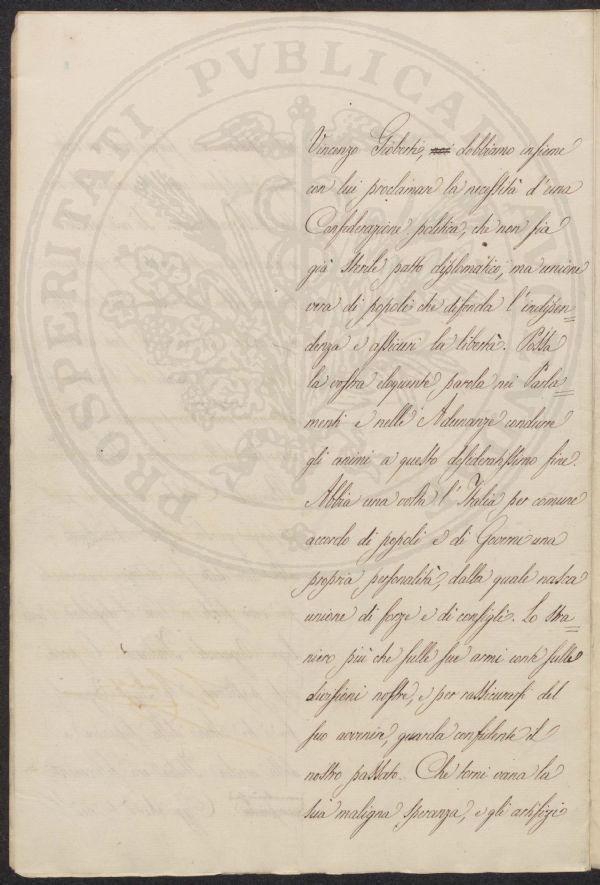 PROSPERITATI PVBLICAE
Vincenzo Gioberti, noi dobbiamo insieme
con lui proclamare la necessità d'una
Confederazione politica, che non sia
già sterile patto diplomatico, ma unione
vera di popoli che difenda l'indipen=
denza e assicuri la libertà. Possa
la vostra eloquente parola nei Parla=
menti e nelle Adunanze condurre
gli animi a questo desideratissimo fine.
Abbia una volta l'Italia per comune
accordo di popoli e di Governi una
propria personalità, dalla quale nasca
unione di forze e di consigli. Lo stra=
niero più che sulle sue armi conta sulle
divisioni nostre, e per rassicurarsi del
suo avvenire, guarda confidente il
nostro passato. Che torni vana la
sua maligna speranza, e gli artifizj